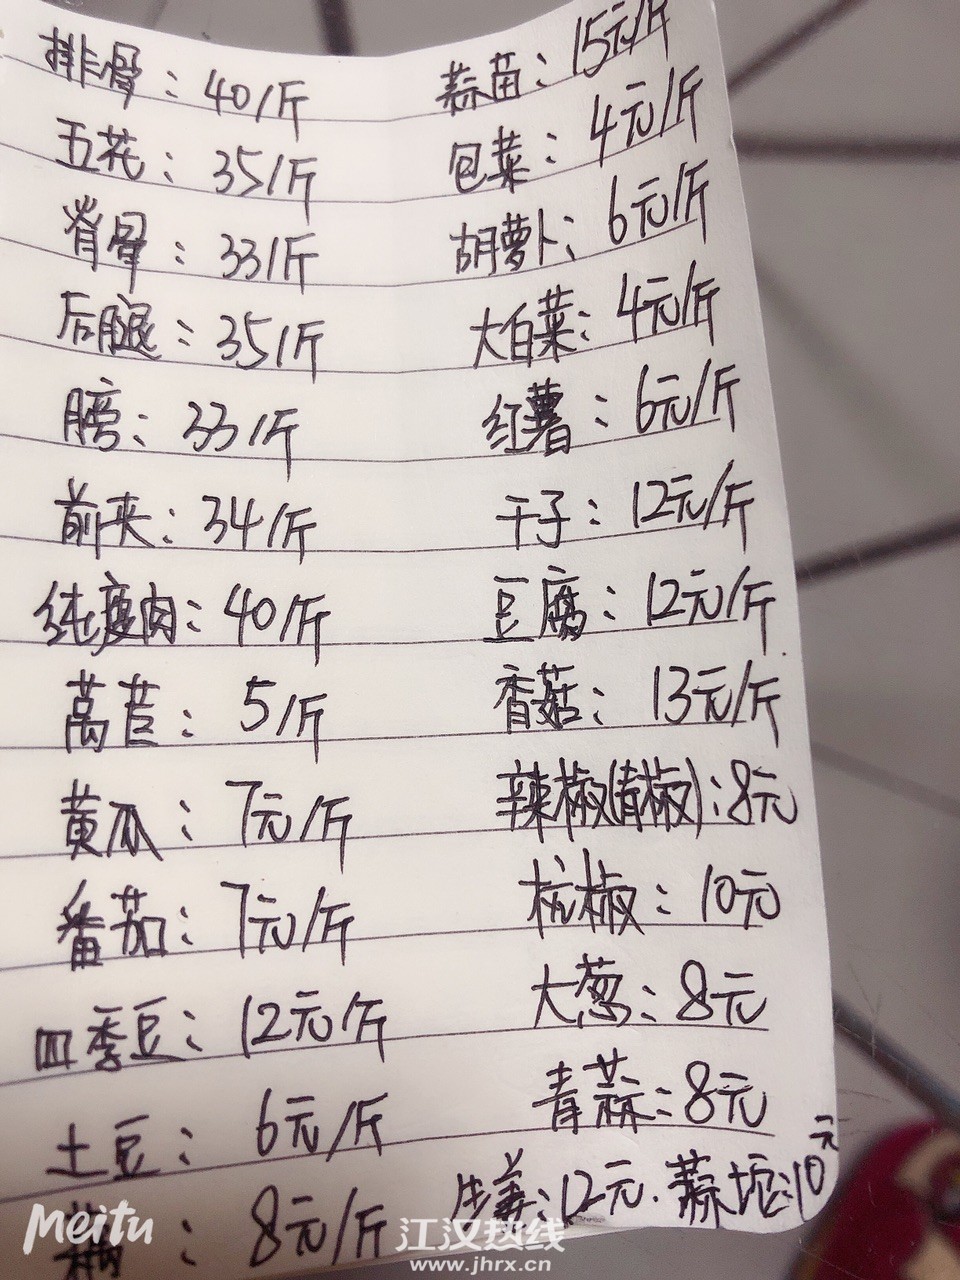 排骨：40/斤
五花：35/斤
脊骨：33/斤
后腿：35/斤
膀：33/斤
前夹：34/斤
纯瘦肉：40/斤
莴苣：5/斤
黄瓜：7元/斤
番茄：7元/斤
四季豆：12元/斤
土豆：6元/斤
8元/斤
蒜苗：15元/斤
包菜：4元/斤
胡萝卜：6元/斤
大白菜：4元/斤
红薯：6元/斤
干子：12元/斤
豆腐：12元/斤
香菇：13元/斤
辣椒(青椒)：8元
杭椒：10元
大葱：8元
青蒜：8元
生姜：12元. 蒜坨：10元
Meitu
江汉热线
www.jhrx.cn